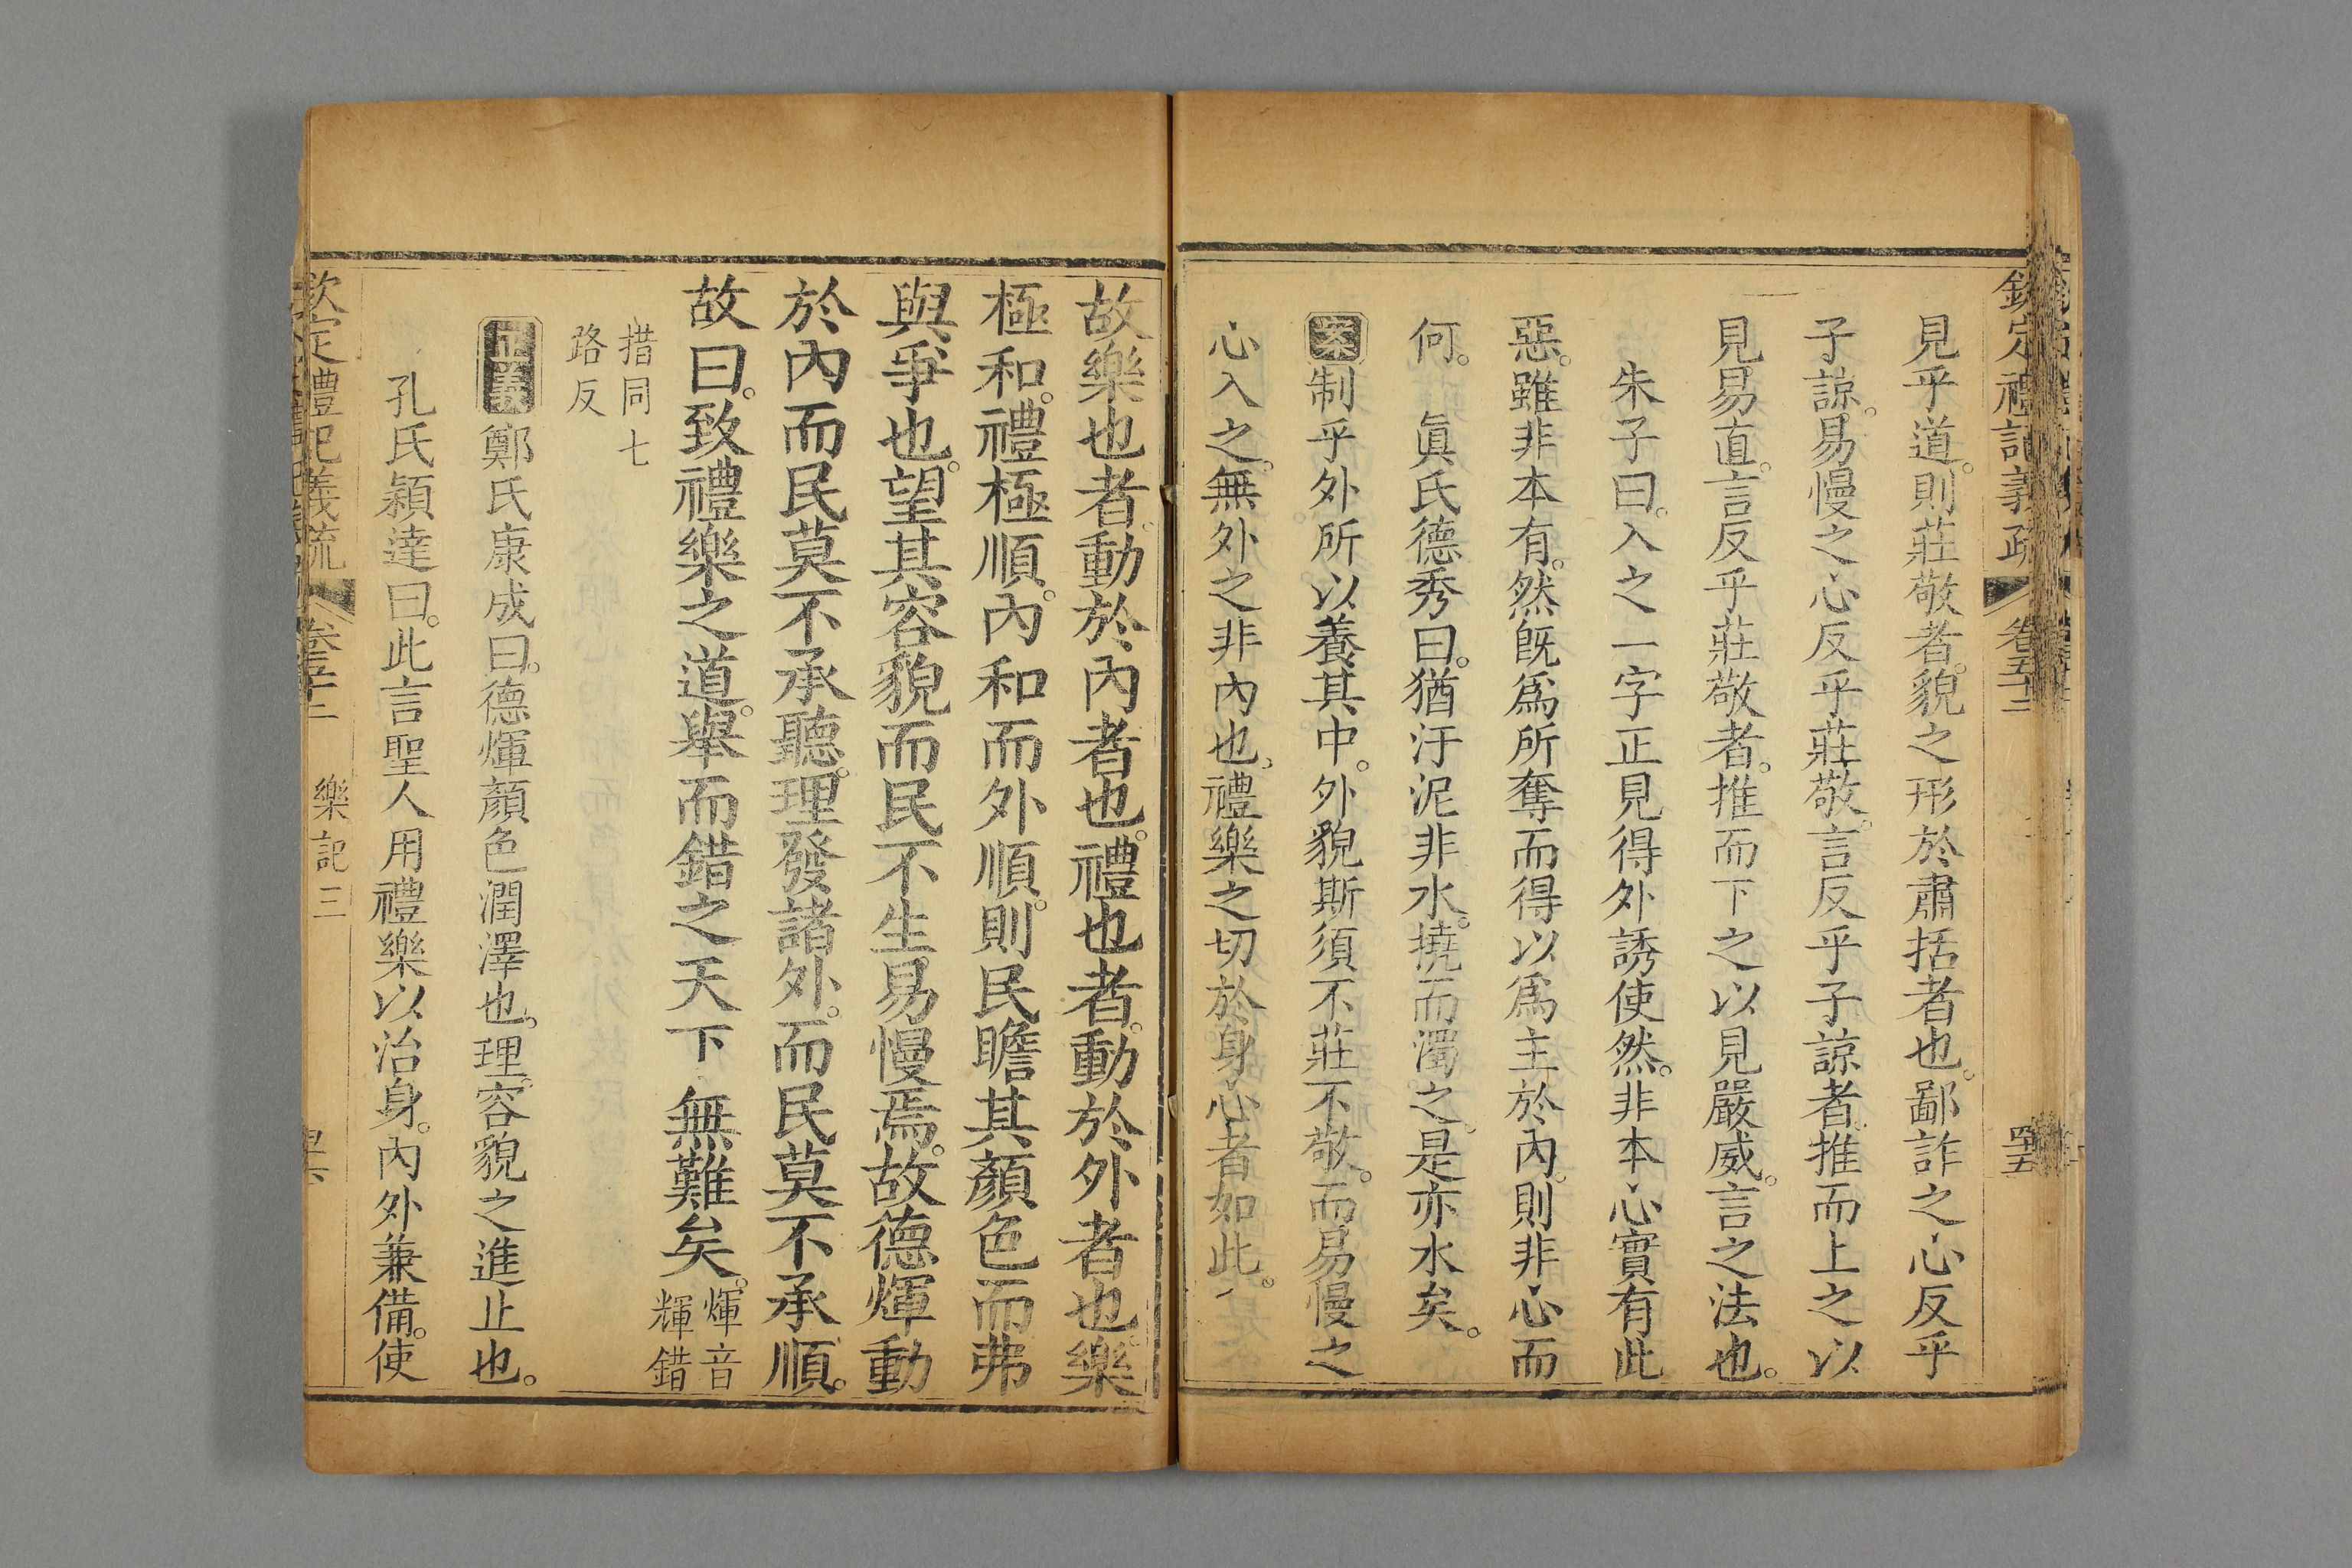 欽定禮記義疏 卷五十二 四五
見乎道。則莊敬者。貌之形於肅括者也。鄙詐之心反乎
子諒。易慢之心反乎莊敬。言反乎子諒者。推而上之以
見易直。言反乎莊敬者。推而下之以見嚴威。言之法也。
朱子曰。入之一字正見得外誘使然。非本心實有此
惡。雖非本有。然旣爲所奪而得以爲主於內。則非心而
何。 眞氏德秀曰。猶汙泥非水。撓而濁之。是亦水矣。
案制乎外所以養其中。外貌斯須不莊不敬。而易慢之
心入之。無外之非內也。禮樂之切於身心者如此。
故樂也者。動於內者也。禮也者。動於外者也。樂
極和。禮極順。內和而外順。則民瞻其顏色而弗
與爭也。望其容貌而民不生易慢焉。故德煇動
於內而民莫不承聽。理發諸外。而民莫不承順。
故曰。致禮樂之道。舉而錯之天下無難矣。煇音
輝錯
措同七
路反
正義鄭氏康成曰。德煇顏色潤澤也。理容貌之進止也。
孔氏穎達曰。此言聖人用禮樂以治身。內外兼備。使
欽定禮記義疏 卷五十二 樂記三